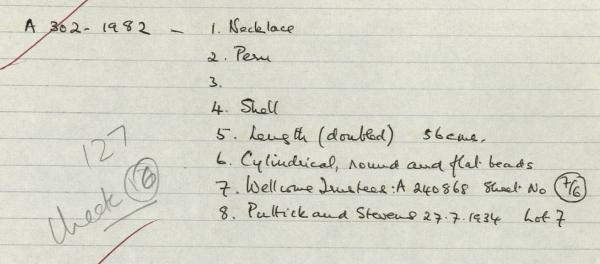 A 302-1982 - 1. Necklace
2. Peru
3.
4. Shell
5. Length (doubled) 56cms.
6. Cylindrical, round and flat beads
7. Wellcome Trustees: A 240868 Sheet No 7/6
8. Puttick and Stevens 27.7.1934 Lot 7
127
check 16